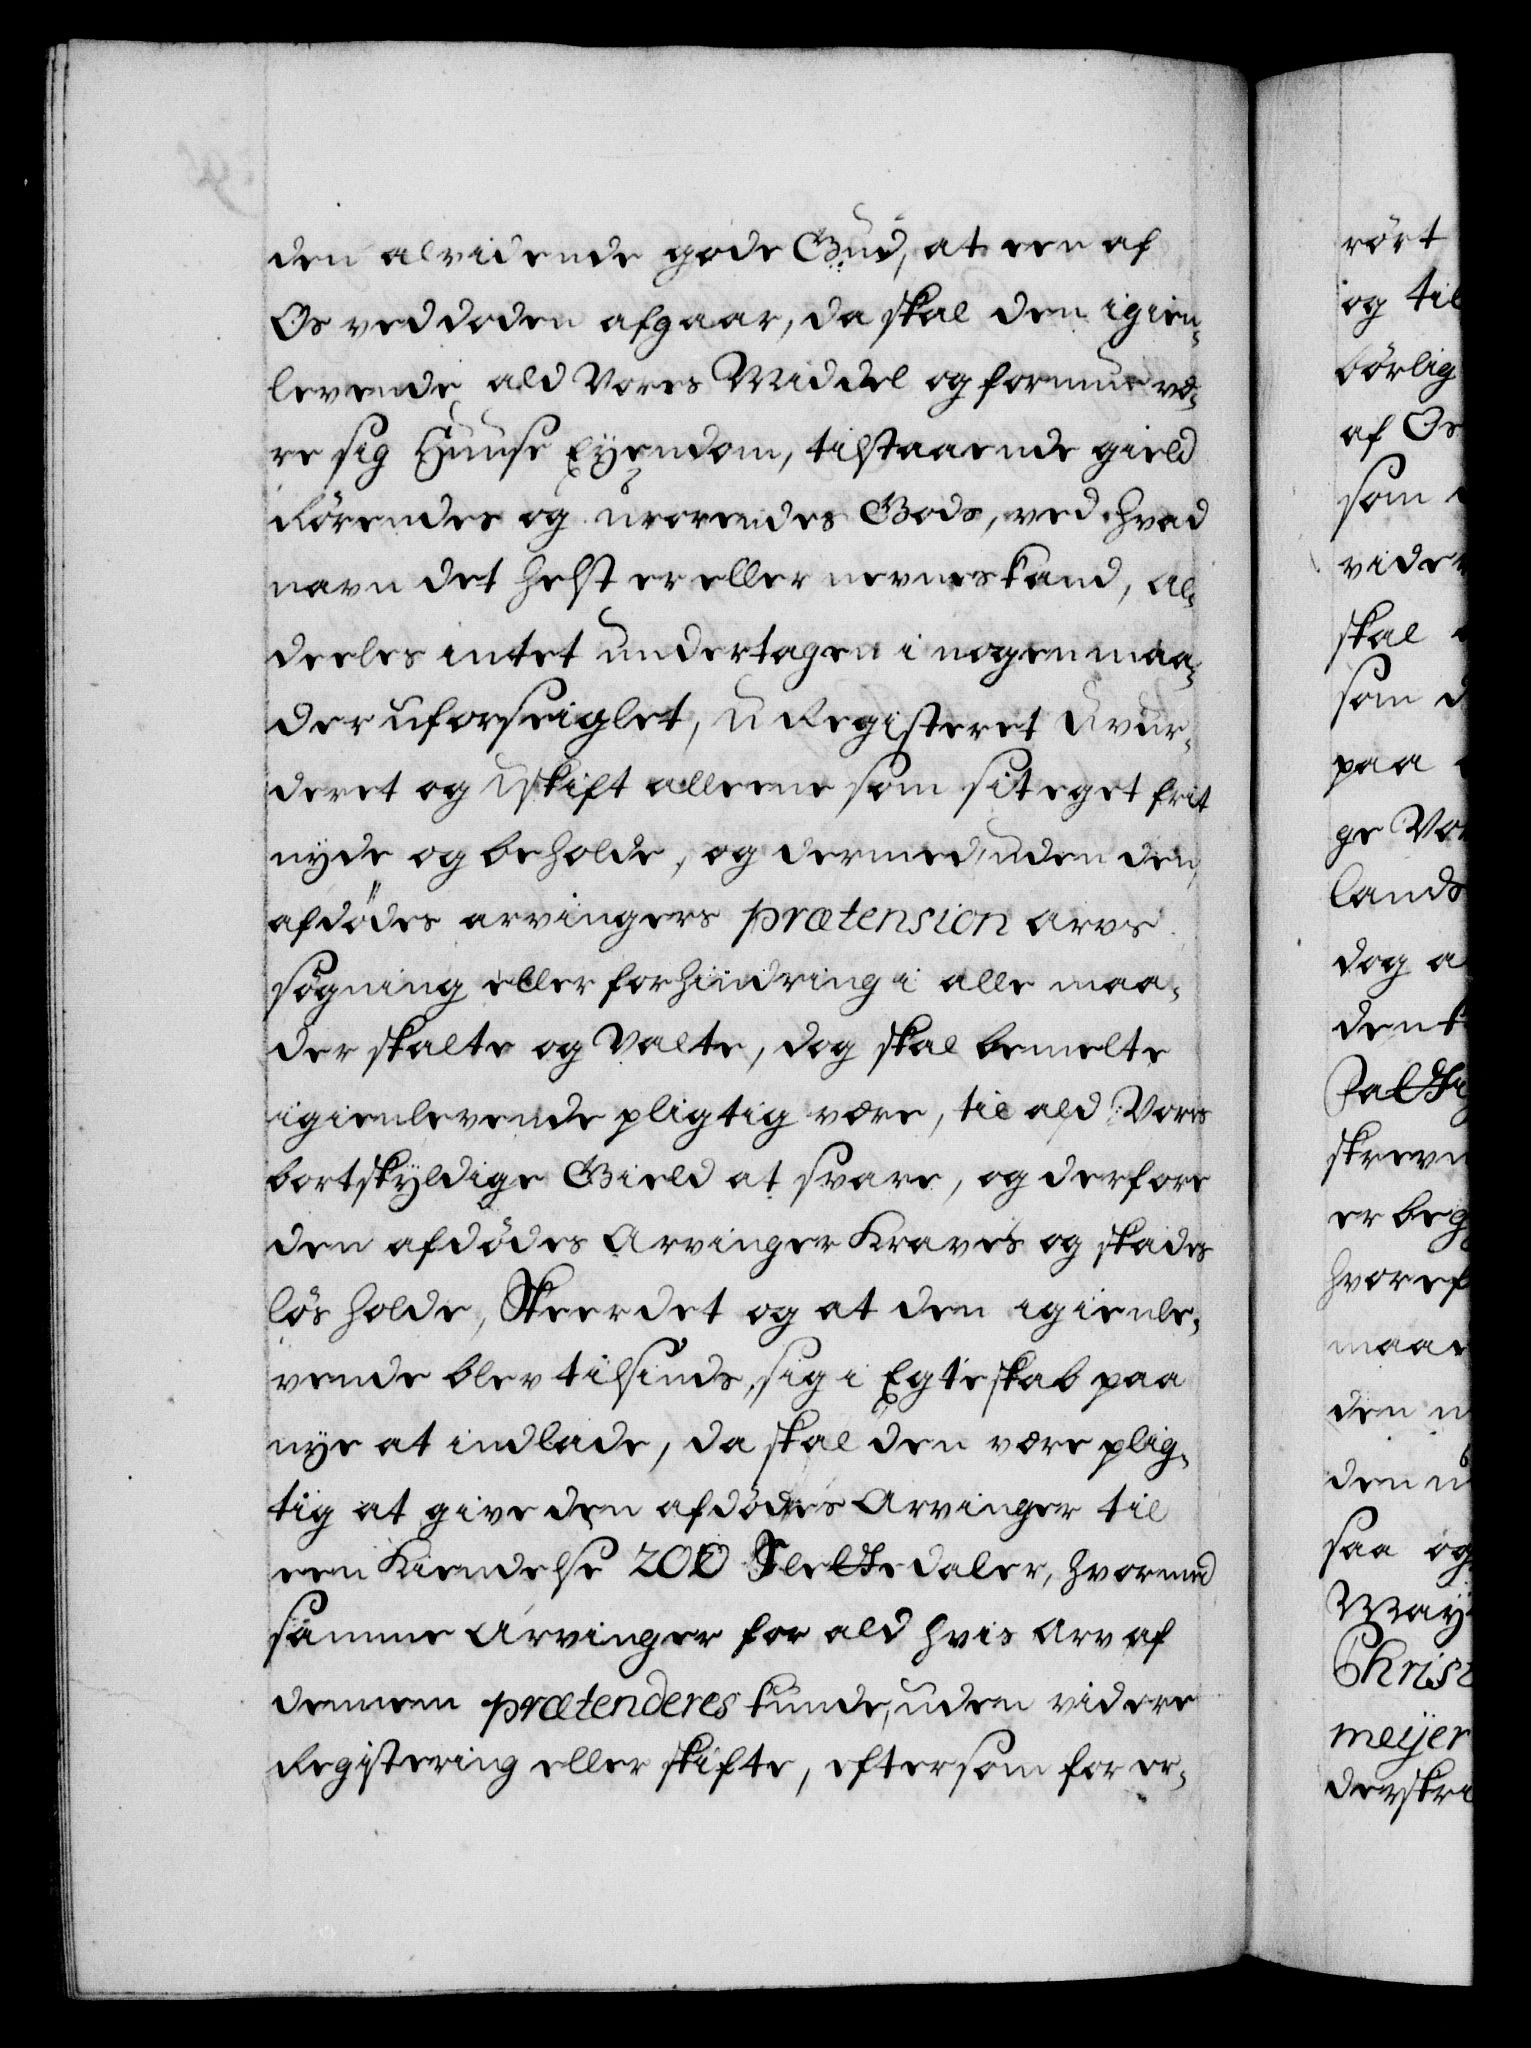 den alvidende gode Gud, at een af
Os ved døden afgaar, da skal den igien-
levende ald Vores Middel og formue væ-
re sig Huuse Eyendom, tilstaaende gield
Rørendes og urørendes Gods, ved hvad
navn det helst er eller nevnes kand, al-
deeles intet undertagen i nogen maa-
der uforseiglet, uRegisteret Uvur-
deret og Uskift alleene som sit eget frit
nyde og beholde, og dermed uden den
afdødes arvingers prætension arvs
søgning eller forhindring i alle maa-
der skalte og Valte, dog skal bemelte
igienlevende pligtig være, til ald Vores
bortskyldige Gield at svare, og derfore
den afdødes Arvinger Kraves og skades
løs holde, Skeer det og at den igienle-
vende blev tilsinds, sig i Egteskab paa
nye at indlade, da skal den være plig-
tig at give den afdødes Arvinger til
een Kiendelse 200 Slettedaler, hvormed
samme Arvinger for ald hvis Arv af
dennem prætenderes kunde, uden videre
Registering eller skifte, eftersom for er-
rört
og til
börlig
af Os
som
vider
skal
som d
paa
ge Vor
lands
dog a
dent
skrevn
er beg
hvoref
maad
den n
den u
saa og
May
Christ
meijer
derskre